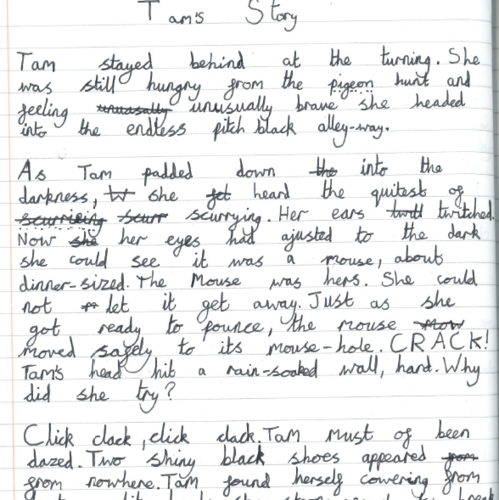 Tam's Story
Tam stayed behind at the turning. She
was still hungry from the pigeon hunt and
feeling unusually unusually brave she headed
into the endless pitch black alley-way.
As Tam padded down the into the
darkness, she heard the quitest of
scurrieing scurr scurrying. Her ears twitched.
Now she her eyes had ajusted to the dark
she could see it was a mouse, about
dinner-sized. The Mouse was hers. She could
not let it get away. Just as she
got ready to pounce, the mouse
moved safely to its mouse-hole. CRACK!
Tam's head hit a rain-soaked wall, hard. Why
did she try?
Click clack, click clack. Tam must of been
dazed. Two shiny black shoes appeared from
from nowhere. Tam found herself cowering from